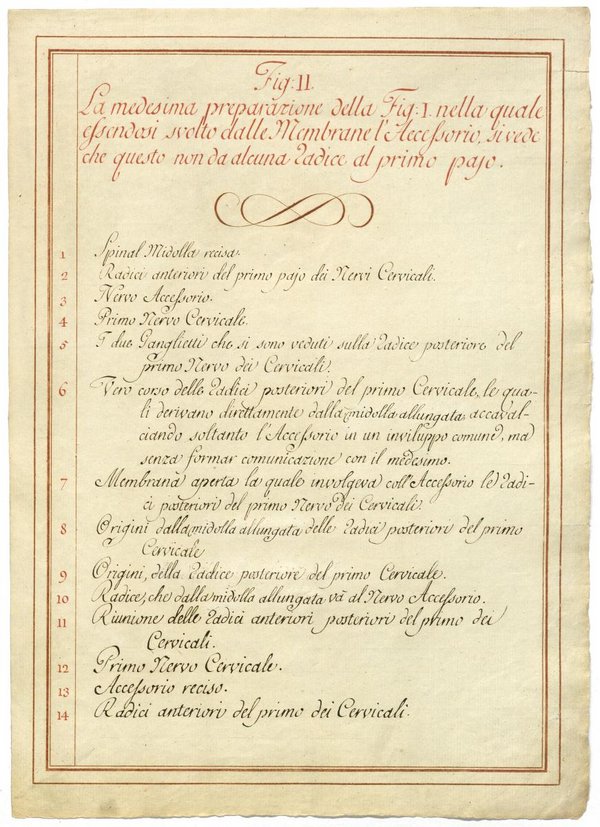 Fig: II.
La medesima preparazione della Fig: I. nella quale
essendosi svolto dalle Membrane l'Accessorio, si vede
che questo non da alcuna radice al primo pajo.
1 Spinal Midolla recisa.
2 Radici anteriori del primo pajo dei Nervi Cervicali.
3 Nervo Accessorio.
4 Primo Nervo Cervicale.
5 I due Ganglietti che si sono veduti sulla radice posteriore del
primo Nervo dei Cervicali.
6 Vero corso delle radici posteriori del primo Cervicale, le qua-
li derivano direttamente dalla midolla allungata accaval-
ciando soltanto l'Accessorio in un inviluppo comune, ma
senza formar comunicazione con il medesimo.
7 Membrana aperta la quale involgeva coll'Accessorio le radi-
ci posteriori del primo Nervo dei Cervicali.
8 Origini dalla midolla allungata delle radici posteriori del primo
Cervicale
9 Origini, della radice posteriore del primo Cervicale.
10 Radice, che dalla midolla allungata và al Nervo Accessorio.
11 Riunione delle radici anteriori posteriori del primo dei
Cervicali.
12 Primo Nervo Cervicale.
13 Accessorio reciso.
14 Radici anteriori del primo dei Cervicali.